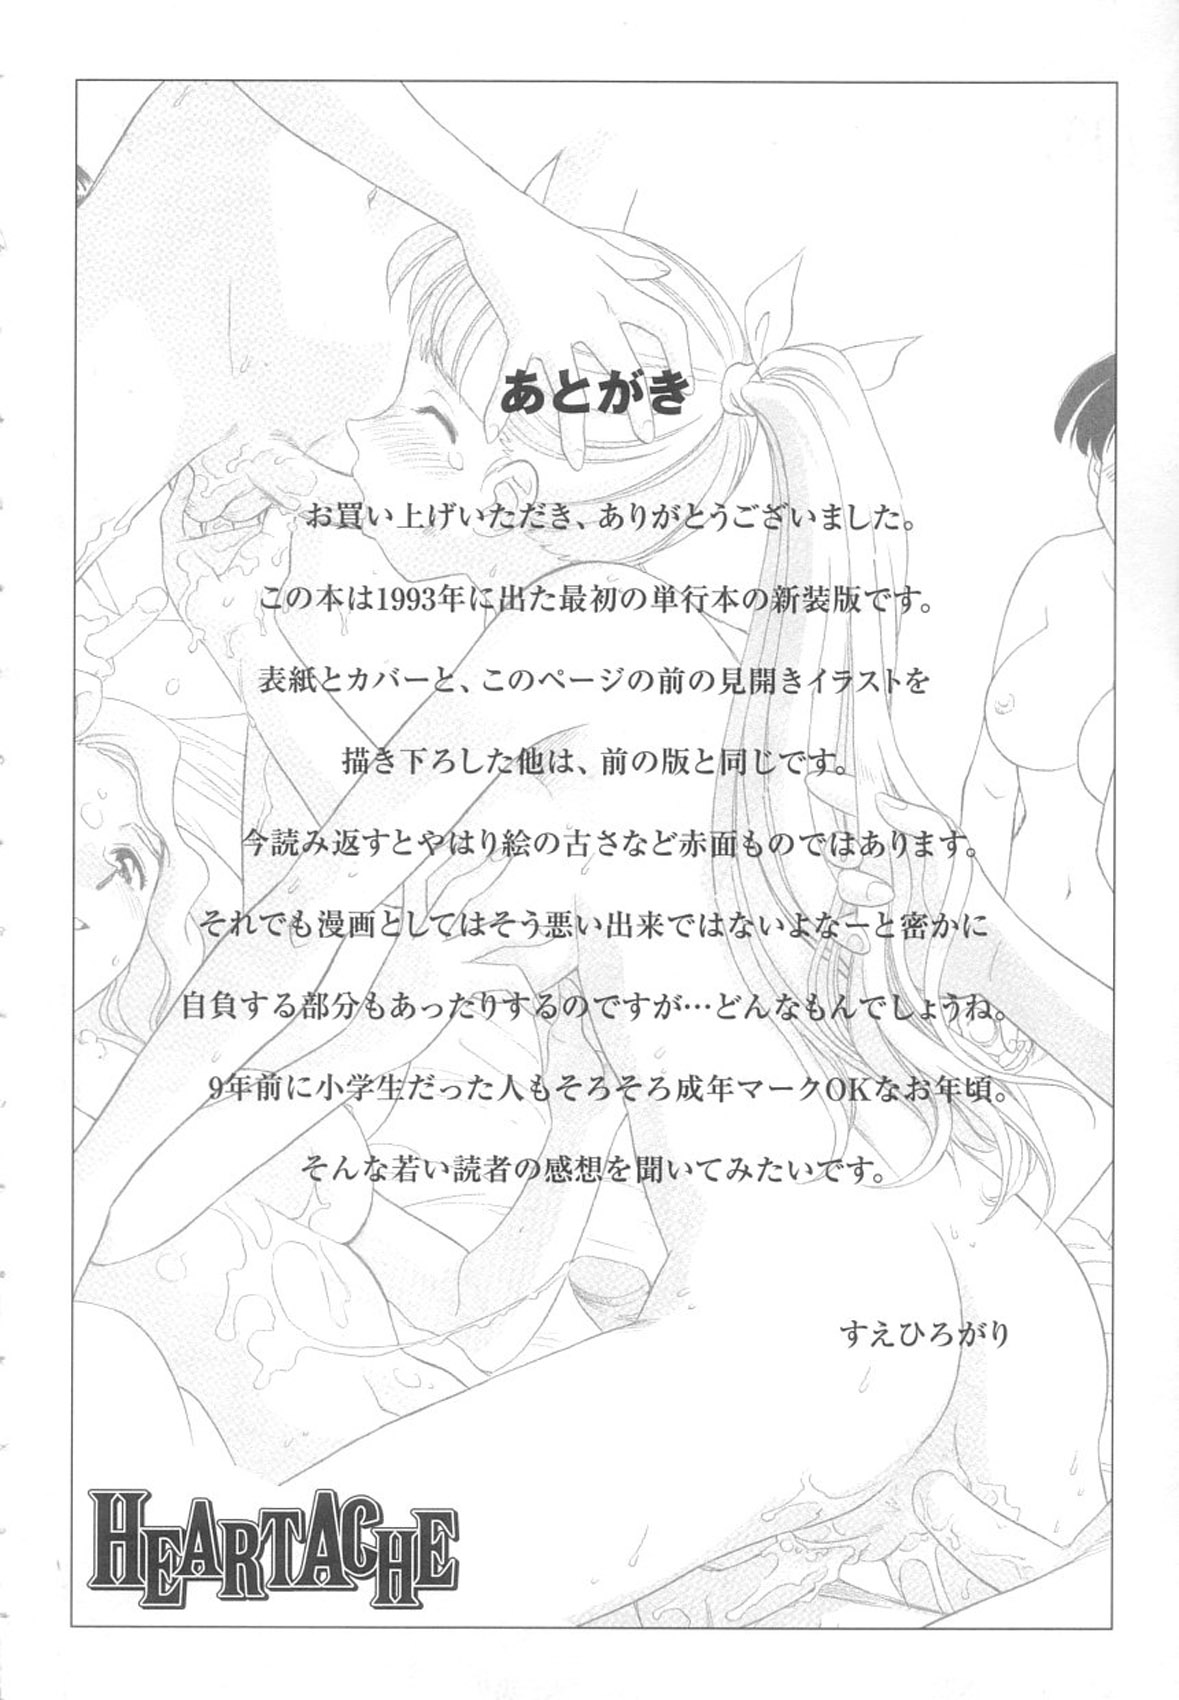 あとがき
お買い上げいただき、ありがとうございました。
この本は1993年に出た最初の単行本の新装版です。
表紙とカバーと、このページの前の見開きイラストを
描き下ろした他は、前の版と同じです。
今読み返すとやはり絵の古さなど赤面ものではあります。
それでも漫画としてはそう悪い出来ではないよなーと密かに
自負する部分もあったりするのですが…どんなもんでしょうね。
9年前に小学生だった人もそろそろ成年マークOKなお年頃。
そんな若い読者の感想を聞いてみたいです。
すえひろがり
HEARTACHE